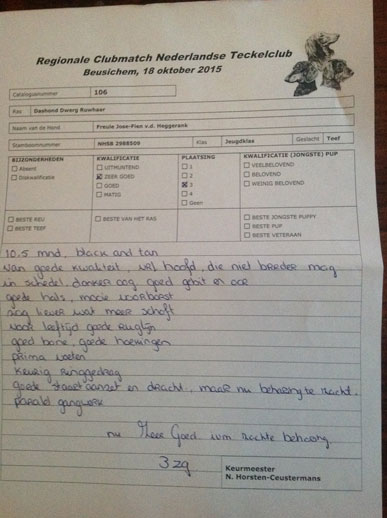 Regionale Clubmatch Nederlandse Teckelclub
Beusichem, 18 oktober 2015
Catalogusnummer 106
Ras Dashond Dwerg Ruwhaar
Naam van de Hond Freule Jose-Fien v.d. Heggerank
Stamboomnummer NHSB 2988509 Klas Jeugdklas Geslacht Teef
BIJZONDERHEDEN KWALIFICATIE PLAATSING KWALIFICATIE (JONGSTE) PUP
Absent UITMUNTEND 1 VEELBELOVEND
Diskwalificatie ZEER GOED 2 BELOVEND
GOED 3 WEINIG BELOVEND
MATIG 4
Geen
BESTE REU BESTE VAN HET RAS BESTE JONGSTE PUPPY
BESTE TEEF BESTE PUP
BESTE VETERAAN
10.5 mnd, black and tan
van goede kwaliteit, hoofd, die niet breder mag
in schedel, donker oog, goed gebit en oor
goede hals, mooie voorborst
nog liever wat meer schoft
voor leeftijd goede ruglijn
goed bone, goede hoekingen
prima voeten
keurig ringgedrag
goede staartaanzet en dracht, maar nu beharing te zacht.
parallel gangwerk
nu Zeer Goed om zachte beharing
3 zg
Keurmeester
N. Horsten-Ceustermans